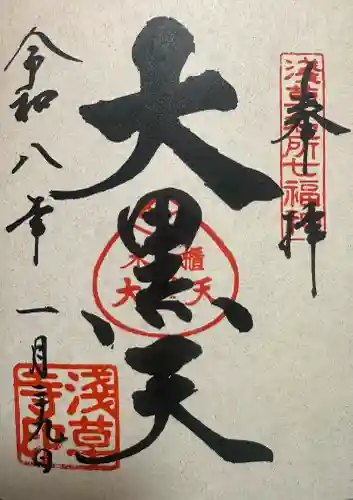 奉拝
浅草名所七福神
大黒天
令和八年一月二十九日
浅草寺印